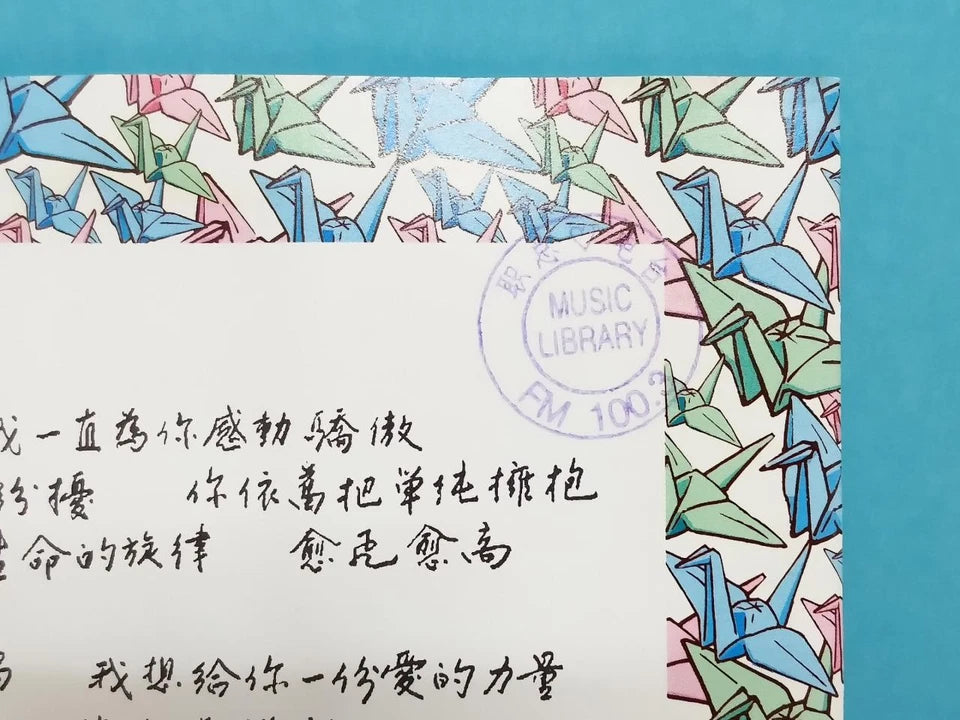 职总 电台
MUSIC
LIBRARY
FM 100.3
我一直為你感動驕傲
紛擾 你依舊把单纯擁抱
生命的旋律 愈飛愈高
我想給你一份愛的力量